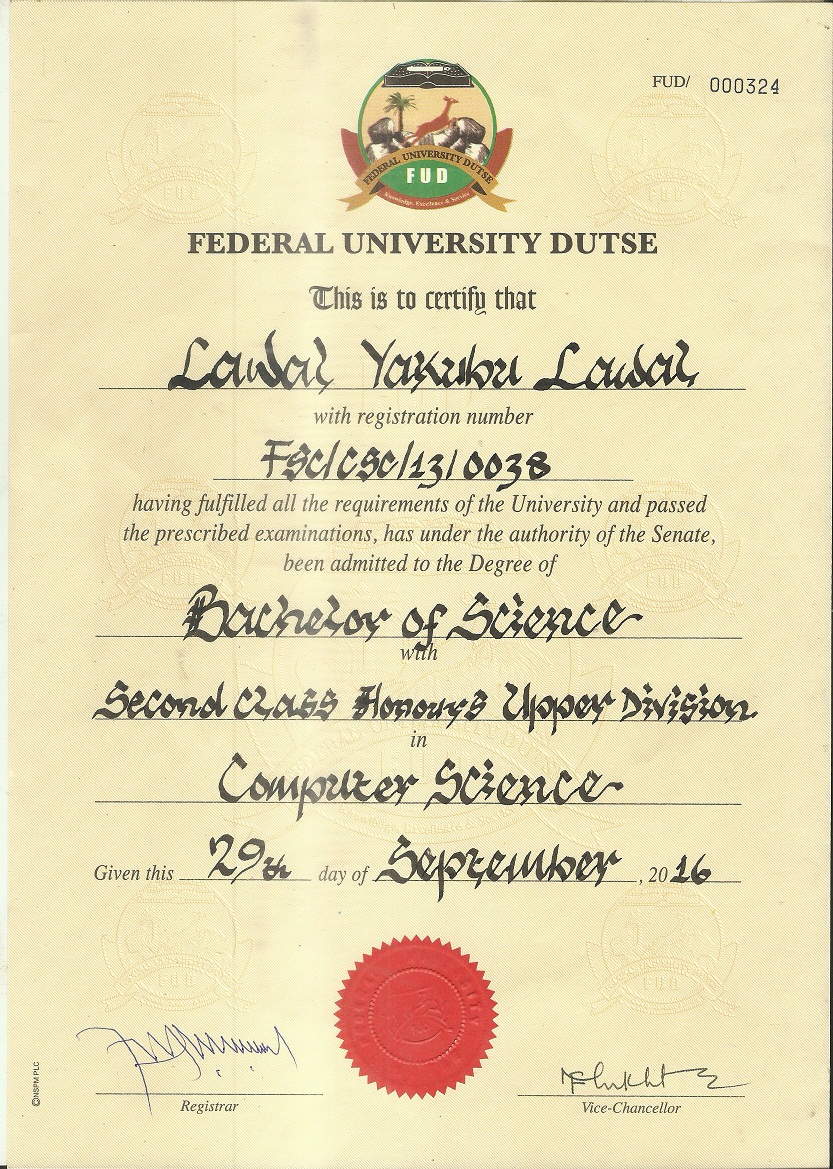 FUD/ 000324
FEDERAL UNIVERSITY DUTSE
FUD
Knowledge, Excellence & Service
FEDERAL UNIVERSITY DUTSE
This is to certify that
Lawal Yakubu Lawal
with registration number
FSC/CSC/13/0038
having fulfilled all the requirements of the University and passed
the prescribed examinations, has under the authority of the Senate,
been admitted to the Degree of
Bachelor of Science
with
Second Class Honours Upper Division
in
Computer Science
Given this 29th day of September, 2016
Registrar
Vice-Chancellor
©NSPM PLC